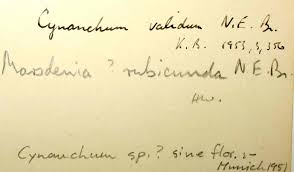 Cynanchum validum N.E. Br.
K.B. 1953, 3, 356
Marsdenia ? rubicunda N.E.Br.
Cynanchum sp.? sine flor. :-
Munich 1951